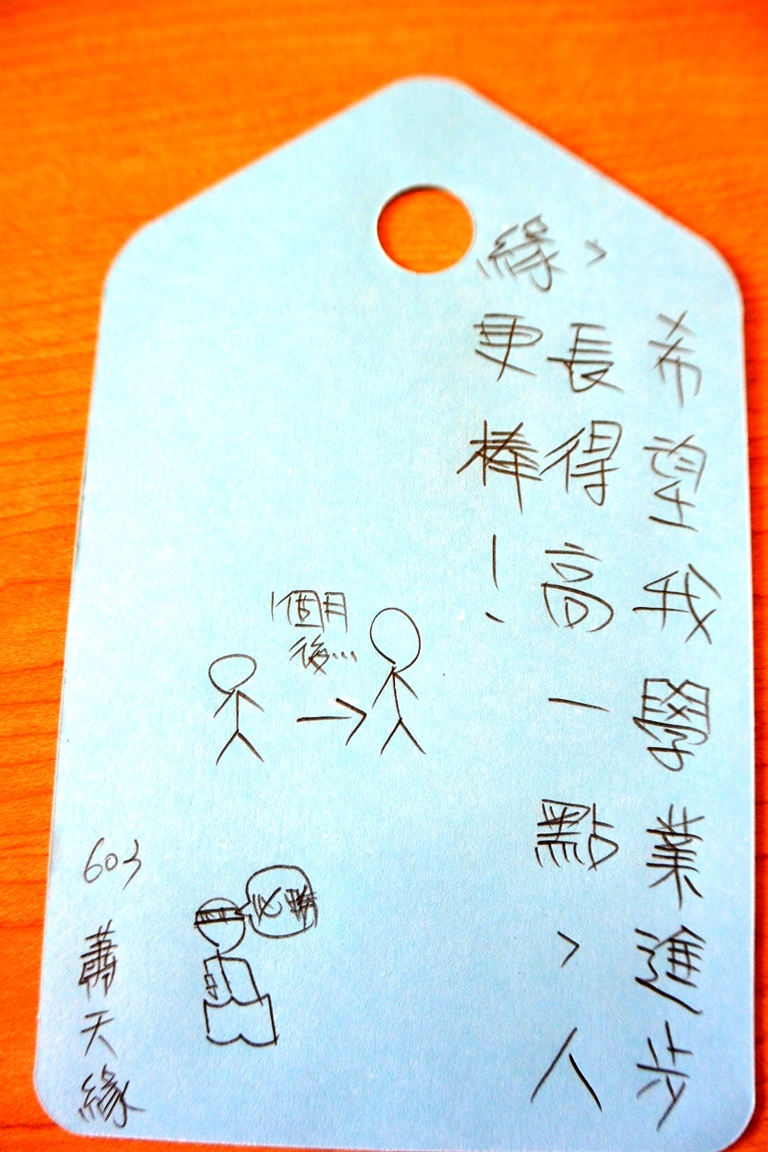 希望我學業進步
、長得高一點、人
緣更棒！
1個月
後…
必勝
603
蕭天緣